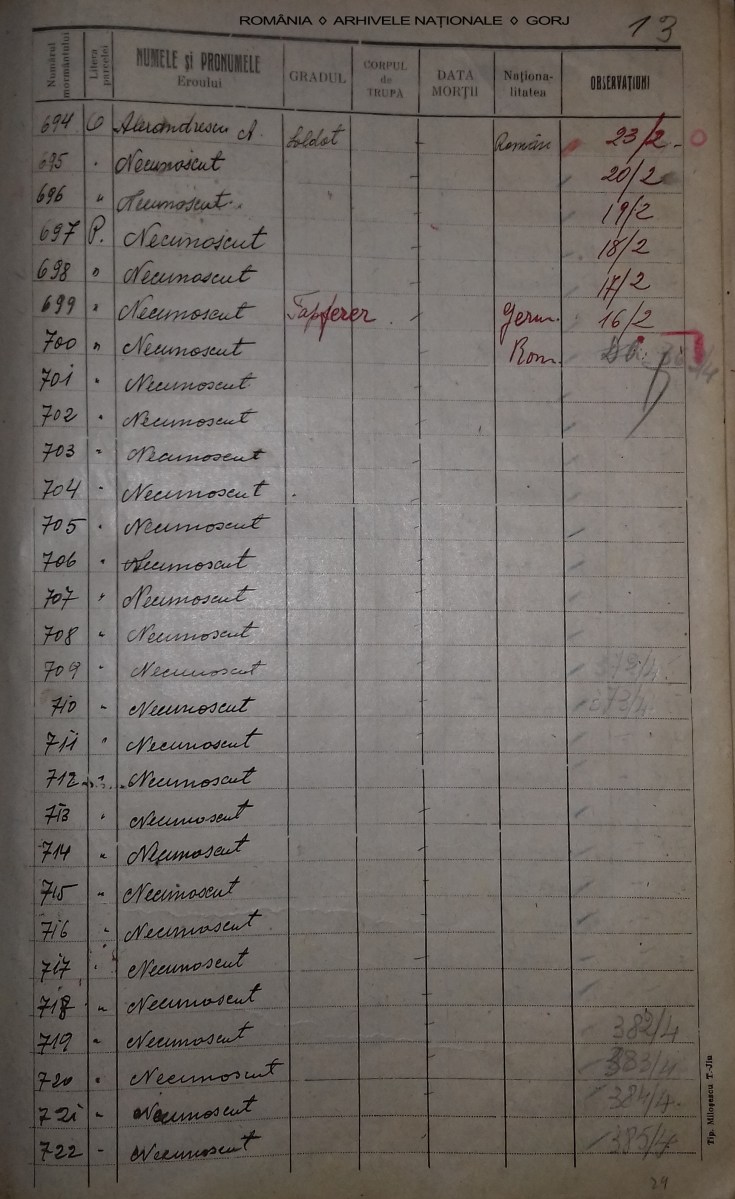 ROMÂNIA ◊ ARHIVELE NAȚIONALE ◊ GORJ
13
Numărul mormântului Litera parcelei NUMELE și PRONUMELE Eroului GRADUL CORPUL de TRUPA DATA MORȚII Naționa-litatea OBSERVAȚIUNI
694 O Alexandrescu A. Soldat - Român 23/2 -
695 " Necunoscut - 20/2
696 " Necunoscut - 19/2
697 P. Necunoscut - 18/2
698 " Necunoscut - 17/2
699 " Necunoscut Tapferer - Germ. 16/2
700 " Necunoscut - Rom.
701 " Necunoscut -
702 " Necunoscut -
703 " Necunoscut -
704 " Necunoscut -
705 " Necunoscut -
706 " Necunoscut -
707 " Necunoscut -
708 " Necunoscut -
709 " Necunoscut -
710 " Necunoscut - 373/4
711 " Necunoscut -
712 " Necunoscut -
713 " Necunoscut -
714 " Necunoscut -
715 " Necunoscut -
716 " Necunoscut -
717 " Necunoscut -
718 " Necunoscut -
719 " Necunoscut - 382/4
720 " Necunoscut - 383/4
721 " Necunoscut - 384/4
722 " Necunoscut - 385/4
Tip. Miloșescu T.-Jiu
29